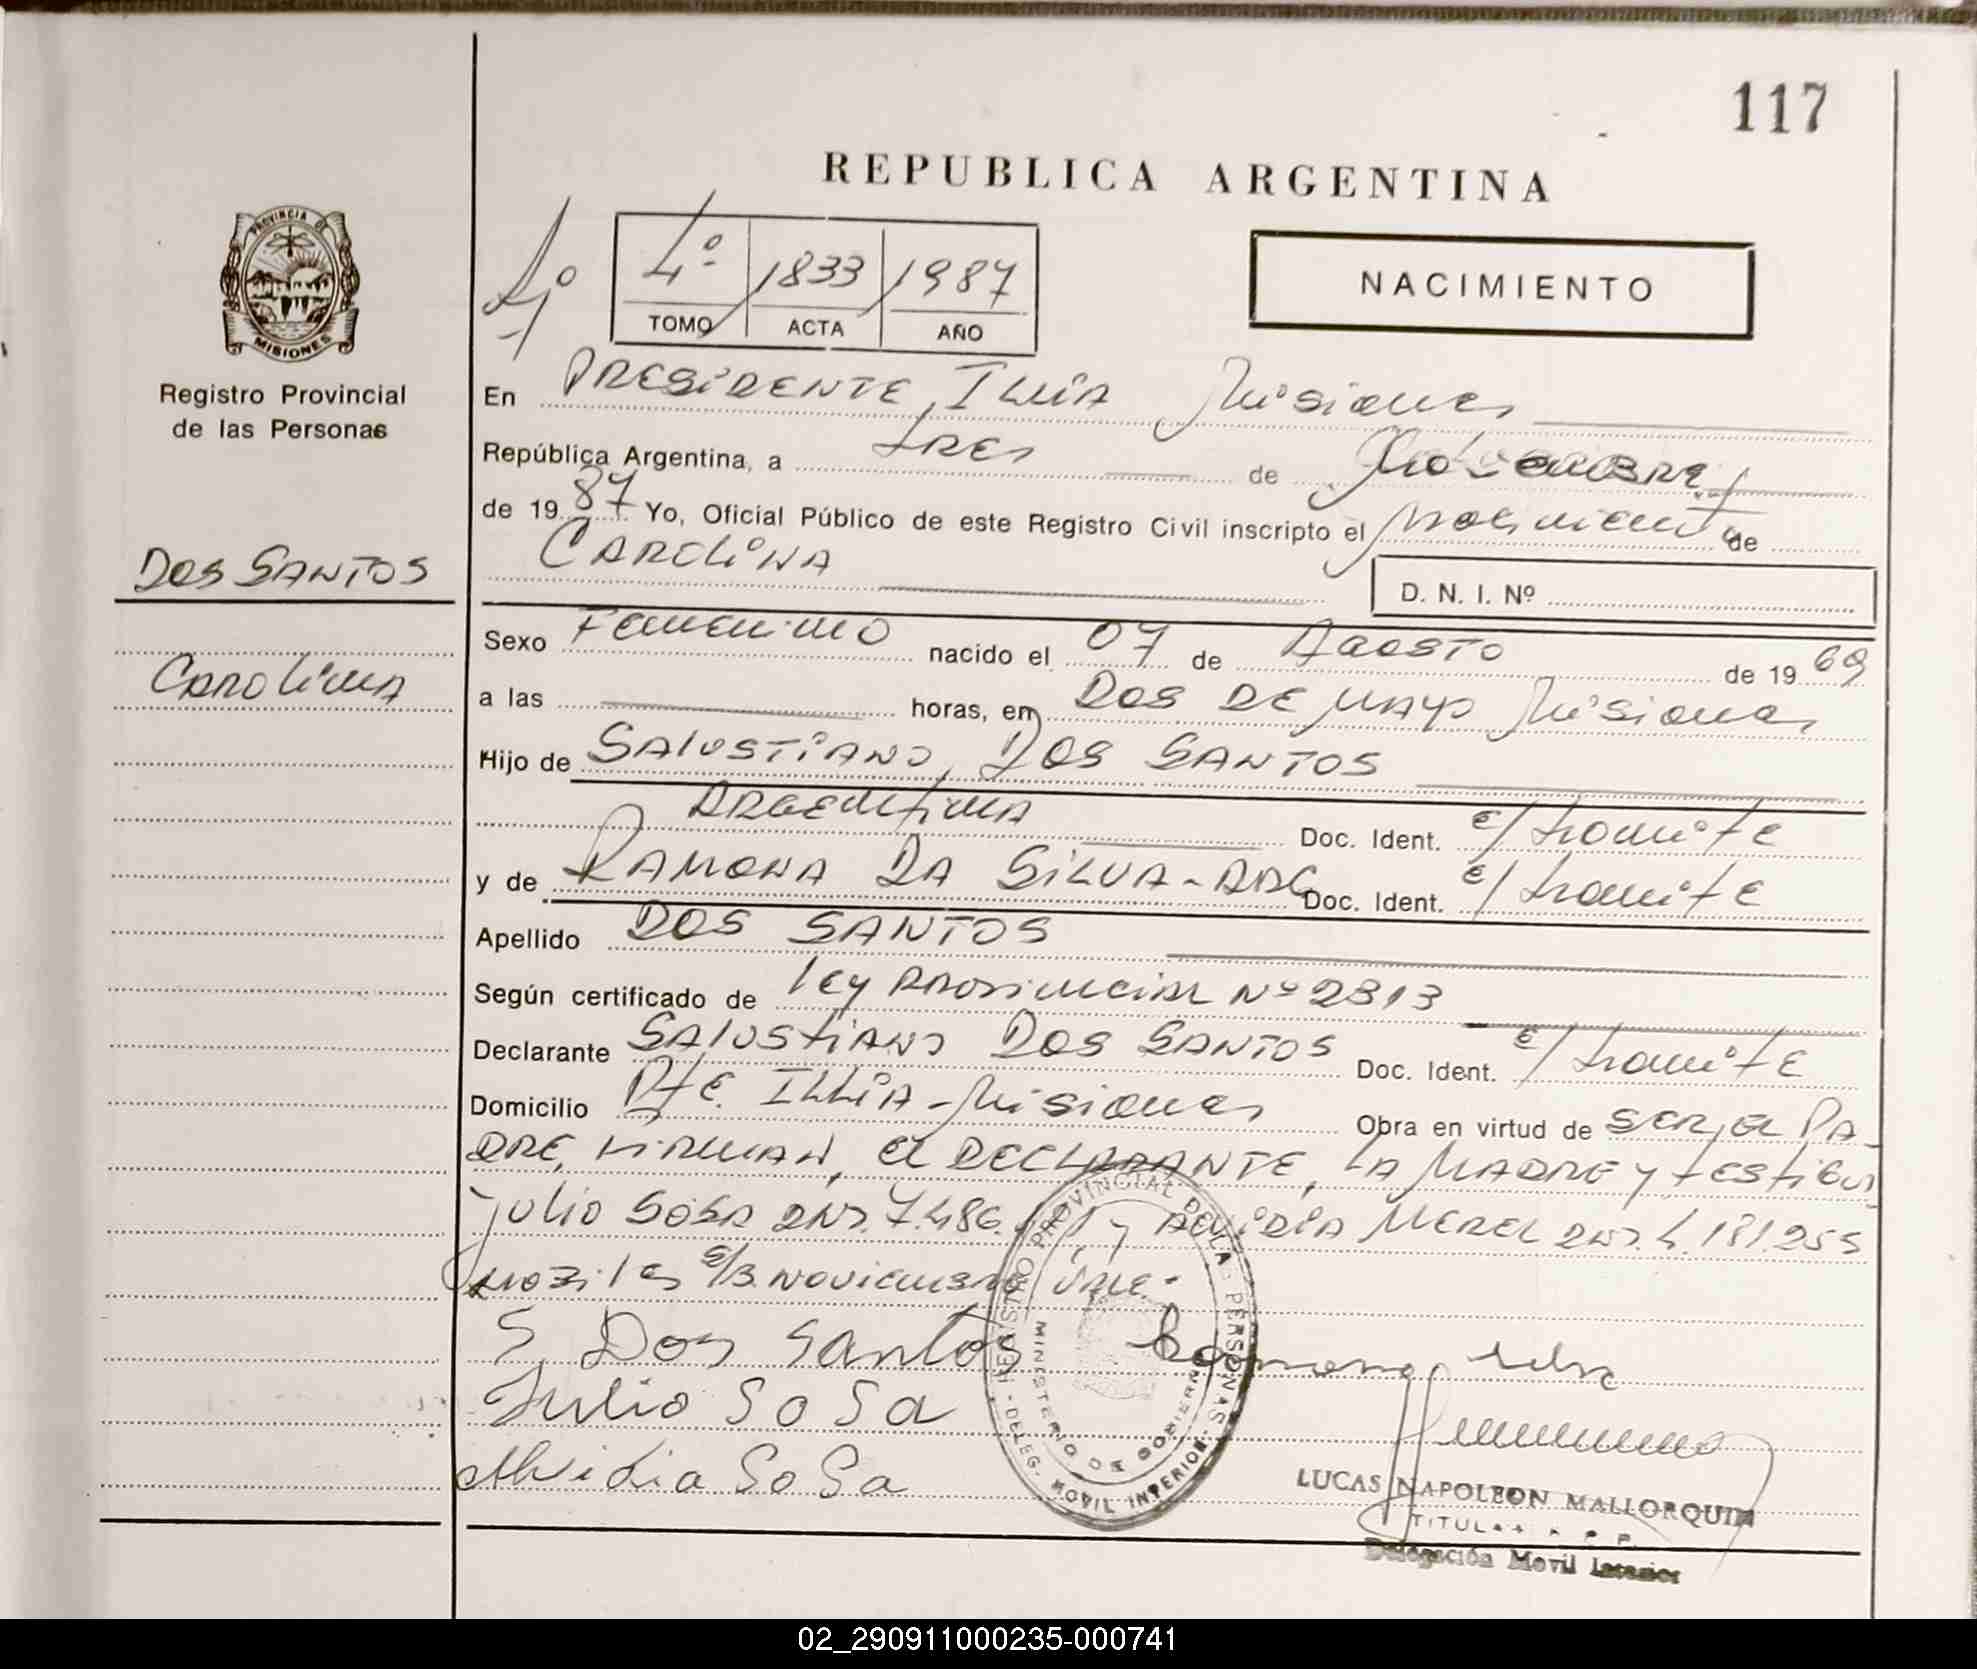 117
REPUBLICA ARGENTINA
4º
4º 1833 1987
TOMO ACTA AÑO
NACIMIENTO
PROVINCIA DE
MISIONES
Registro Provincial
de las Personas
DOS SANTOS
CAROLINA
En PRESIDENTE ILLIA Misiones
República Argentina, a tres de Noviembre
de 1987 Yo, Oficial Público de este Registro Civil inscripto el Nacimiento de
CAROLINA D. N. I. Nº
Sexo Femenino nacido el 07 de Agosto de 1969
a las horas, en DOS DE MAYO Misiones
Hijo de SALUSTIANO DOS SANTOS
ARGENTINA Doc. Ident. e/ tramite
y de RAMONA DA SILVA - ARG Doc. Ident. e/ tramite
Apellido DOS SANTOS
Según certificado de ley Provincial Nº 2313
Declarante SALUSTIANO DOS SANTOS Doc. Ident. e/ tramite
Domicilio Pte. ILLIA - Misiones Obra en virtud de SER EL PA-
DRE, FIRMAN, EL DECLARANTE, LA MADRE y testigos
Julio SOSA DNI. 7.486. y ALVIDIA MEREL DNI. 4.181.255
S/B. NOVIEMBRE VALE.
S. Dos Santos Ramona silva
Julio SoSa
Alvidia SoSa
REGISTRO PROVINCIAL DE LAS PERSONAS
MINISTERIO DE GOBIERNO
- DELEG. MOVIL INTERIOR -
LUCAS NAPOLEON MALLORQUIN
TITULAR
Delegación Movil Interior
02_290911000235-000741